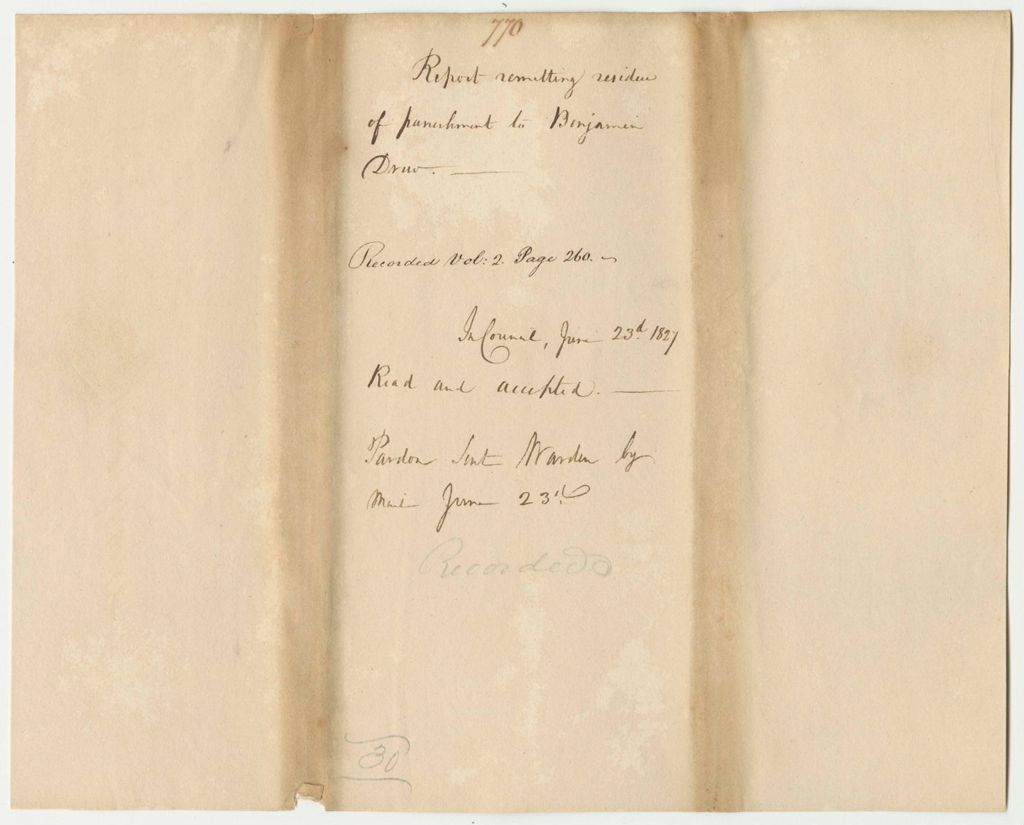 770
Report remitting residue
of punishment to Benjamin
Drew.
Recorded Vol: 2. Page 260.
In Council, June 23d. 1827
Read and accepted.
Pardon Sent Warden by
Mail June 23d.
Recorded
30